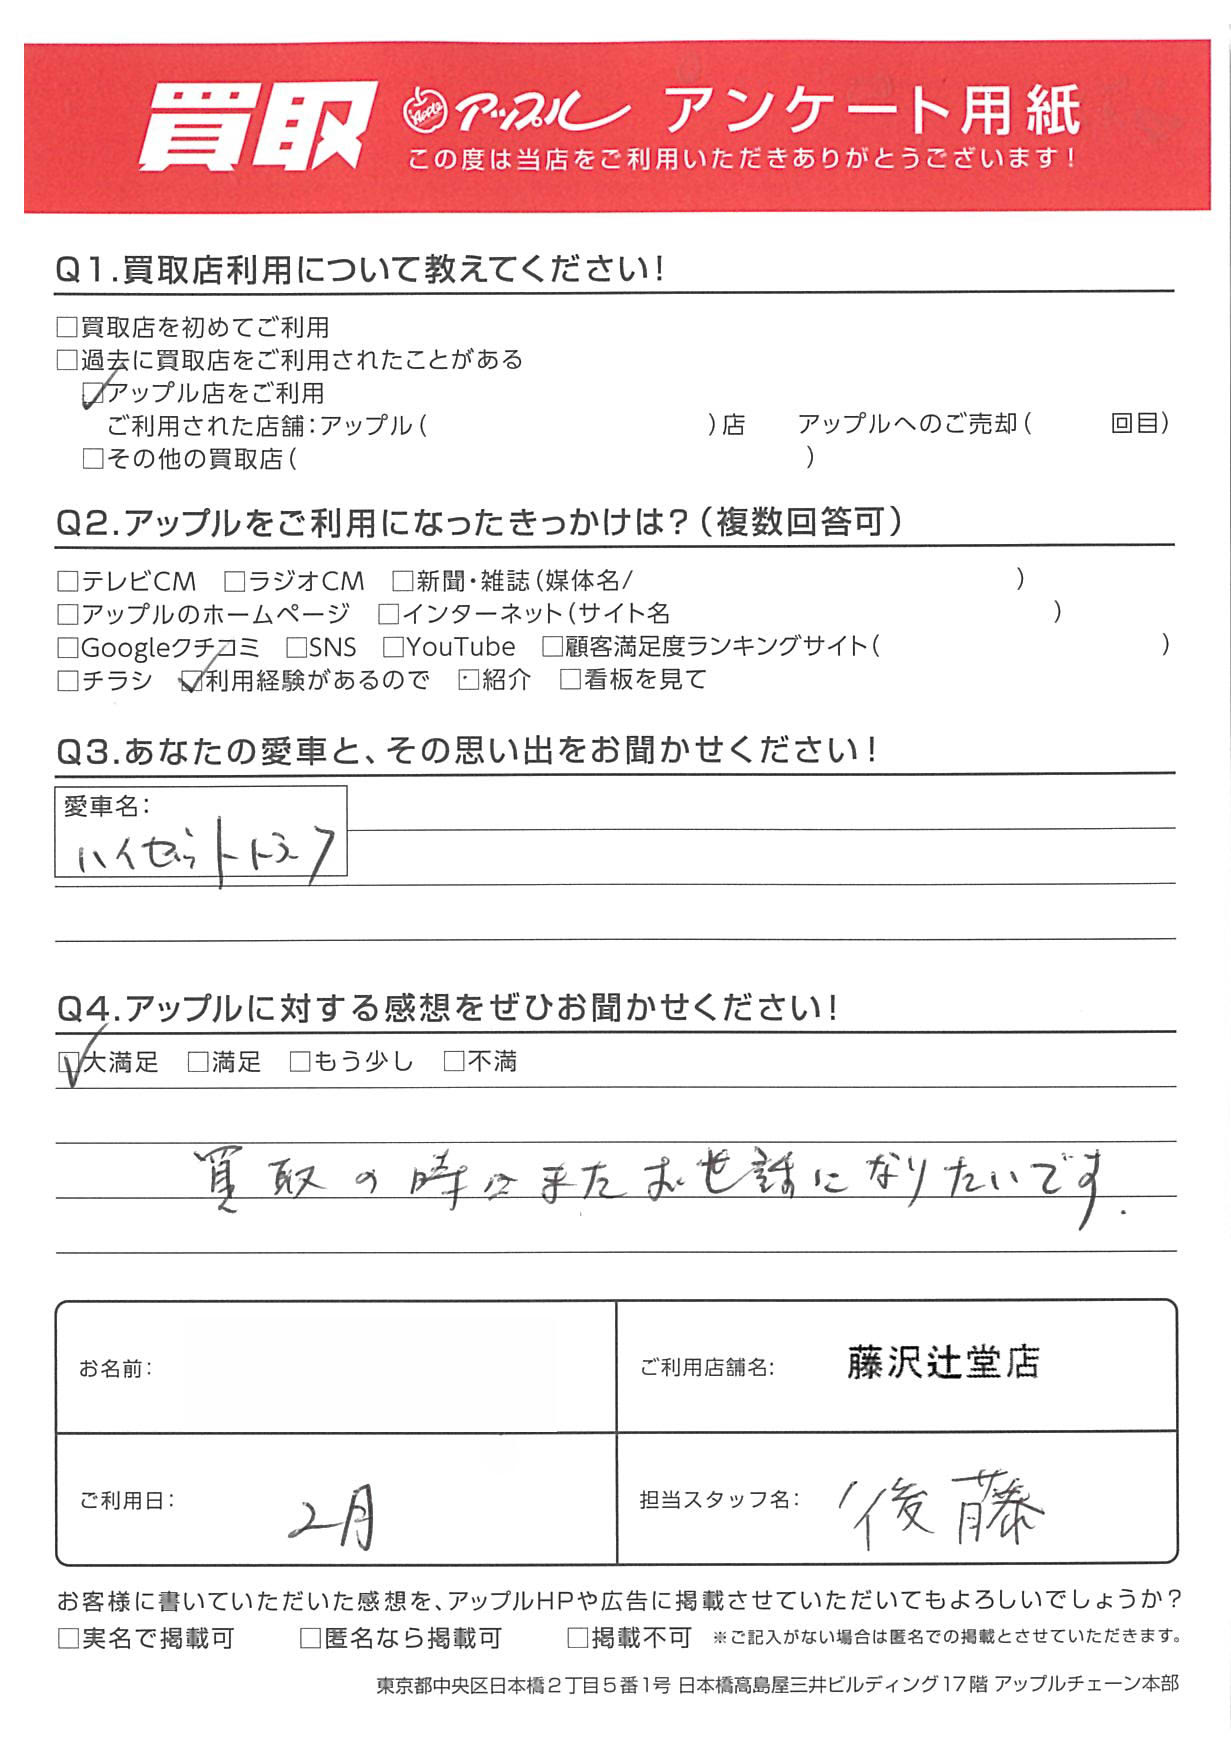 買取 Apple アップル アンケート用紙
この度は当店をご利用いただきありがとうございます！
Q1.買取店利用について教えてください！
□買取店を初めてご利用
□過去に買取店をご利用されたことがある
☑アップル店をご利用
ご利用された店舗：アップル（ ）店 アップルへのご売却（ 回目）
□その他の買取店（ ）
Q2.アップルをご利用になったきっかけは？（複数回答可）
□テレビCM □ラジオCM □新聞・雑誌（媒体名/ ）
□アップルのホームページ □インターネット（サイト名 ）
□Googleクチコミ □SNS □YouTube □顧客満足度ランキングサイト（ ）
□チラシ ☑利用経験があるので □紹介 □看板を見て
Q3.あなたの愛車と、その思い出をお聞かせください！
愛車名：
ハイゼットトラック
Q4.アップルに対する感想をぜひお聞かせください！
☑大満足 □満足 □もう少し □不満
買取の時はまたお世話になりたいです.
お名前： ご利用店舗名: 藤沢辻堂店
ご利用日： 2月 担当スタッフ名： 後藤
お客様に書いていただいた感想を、アップルHPや広告に掲載させていただいてもよろしいでしょうか？
□実名で掲載可 □匿名なら掲載可 □掲載不可 ※ご記入がない場合は匿名での掲載とさせていただきます。
東京都中央区日本橋２丁目５番１号 日本橋高島屋三井ビルディング17階 アップルチェーン本部